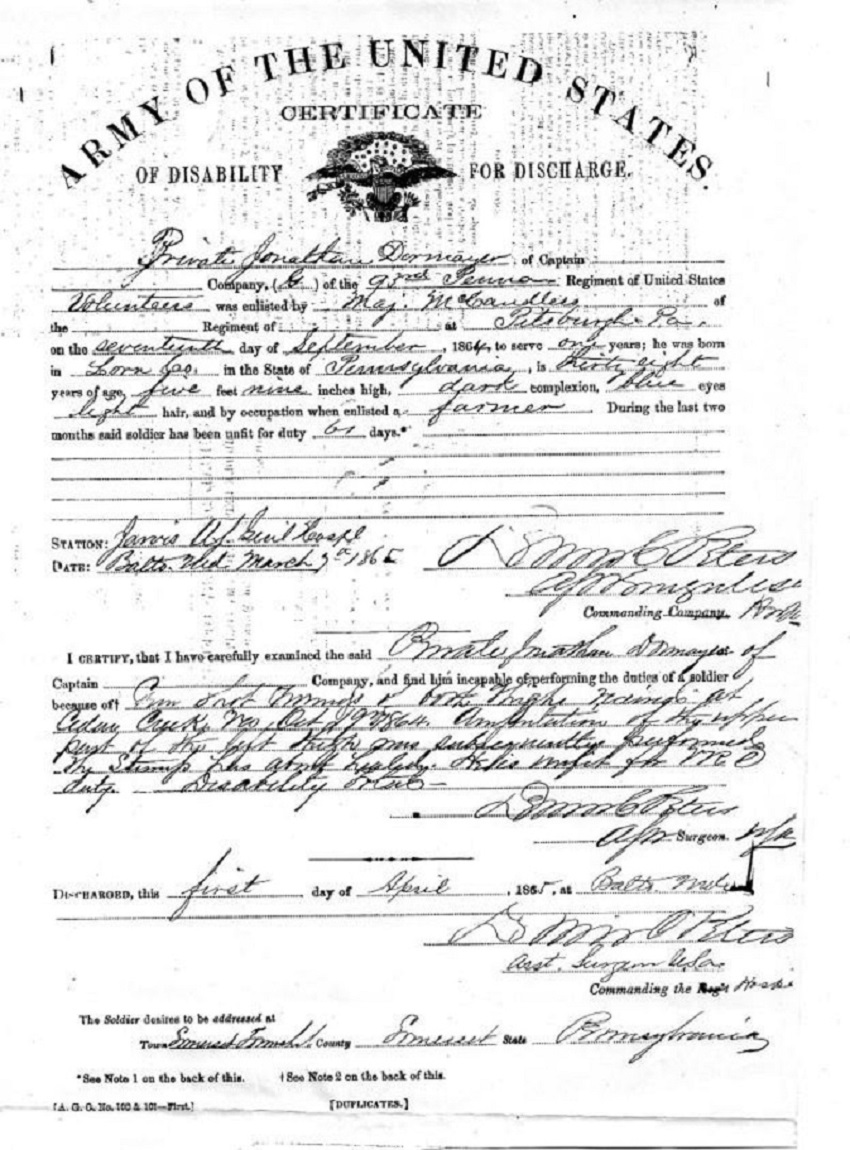 ARMY OF THE UNITED STATES.
CERTIFICATE
OF DISABILITY FOR DISCHARGE.
Private Jonathan Dormayer, of Captain
Company, ( ) of the 93rd Penna Regiment of United States
Volunteers was enlisted by Maj. McCandless of
the Regiment of at Pittsburgh Pa.
on the seventeenth day of September, 1864, to serve one years; he was born
in in the State of Pennsylvania, is thirty eight
years of age, five feet nine inches high, dark complexion, blue eyes
light hair, and by occupation when enlisted a farmer. During the last two
months said soldier has been unfit for duty days.*
STATION: Jarvis U.S. Genl Hospl
DATE: Balto. Md. March 1865
Peters
Commanding Company.
I CERTIFY, that I have carefully examined the said Private Jonathan Dormayer of
Captain Company, and find him incapable of performing the duties of a soldier
because of† Gun Shot Wounds of both thighs at
Cedar Creek, Oct 1864. Amputation of the upper
part of the left thigh was subsequently performed
The Stump has about healed. He is unfit for
duty. Disability total
Peters
Surgeon.
DISCHARGED, this first day of April, 1865, at Balto. Md.
Peters
Asst. Surgeon U.S.A.
Commanding the Reg't
The Soldier desires to be addressed at
Town Somerset County Somerset State Pennsylvania
*See Note 1 on the back of this. †See Note 2 on the back of this.
[A. G. O. No. 100 & 101—First.] [DUPLICATES.]